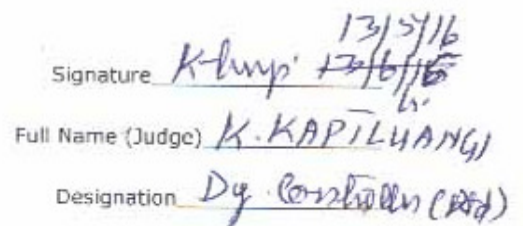 13/5/16
Signature
Full Name (Judge) K. KAPILUANGI
Designation Dy. Controller (Rtd)